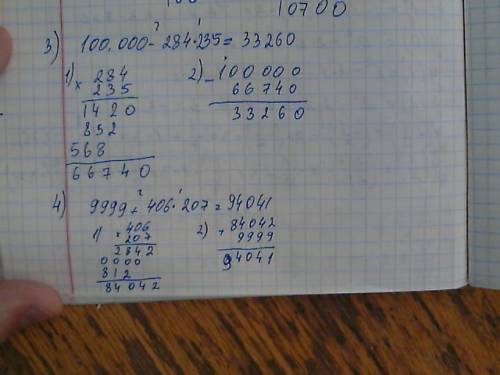 10700
3) 100.000 - 284 · 235 = 33260
1) × 284
235
1420
852
568
66740
2) - 100000
66740
33260
4) 9999 + 406 · 207 = 94041
1) × 406
207
2842
0000
812
84042
2) + 84042
9999
94041